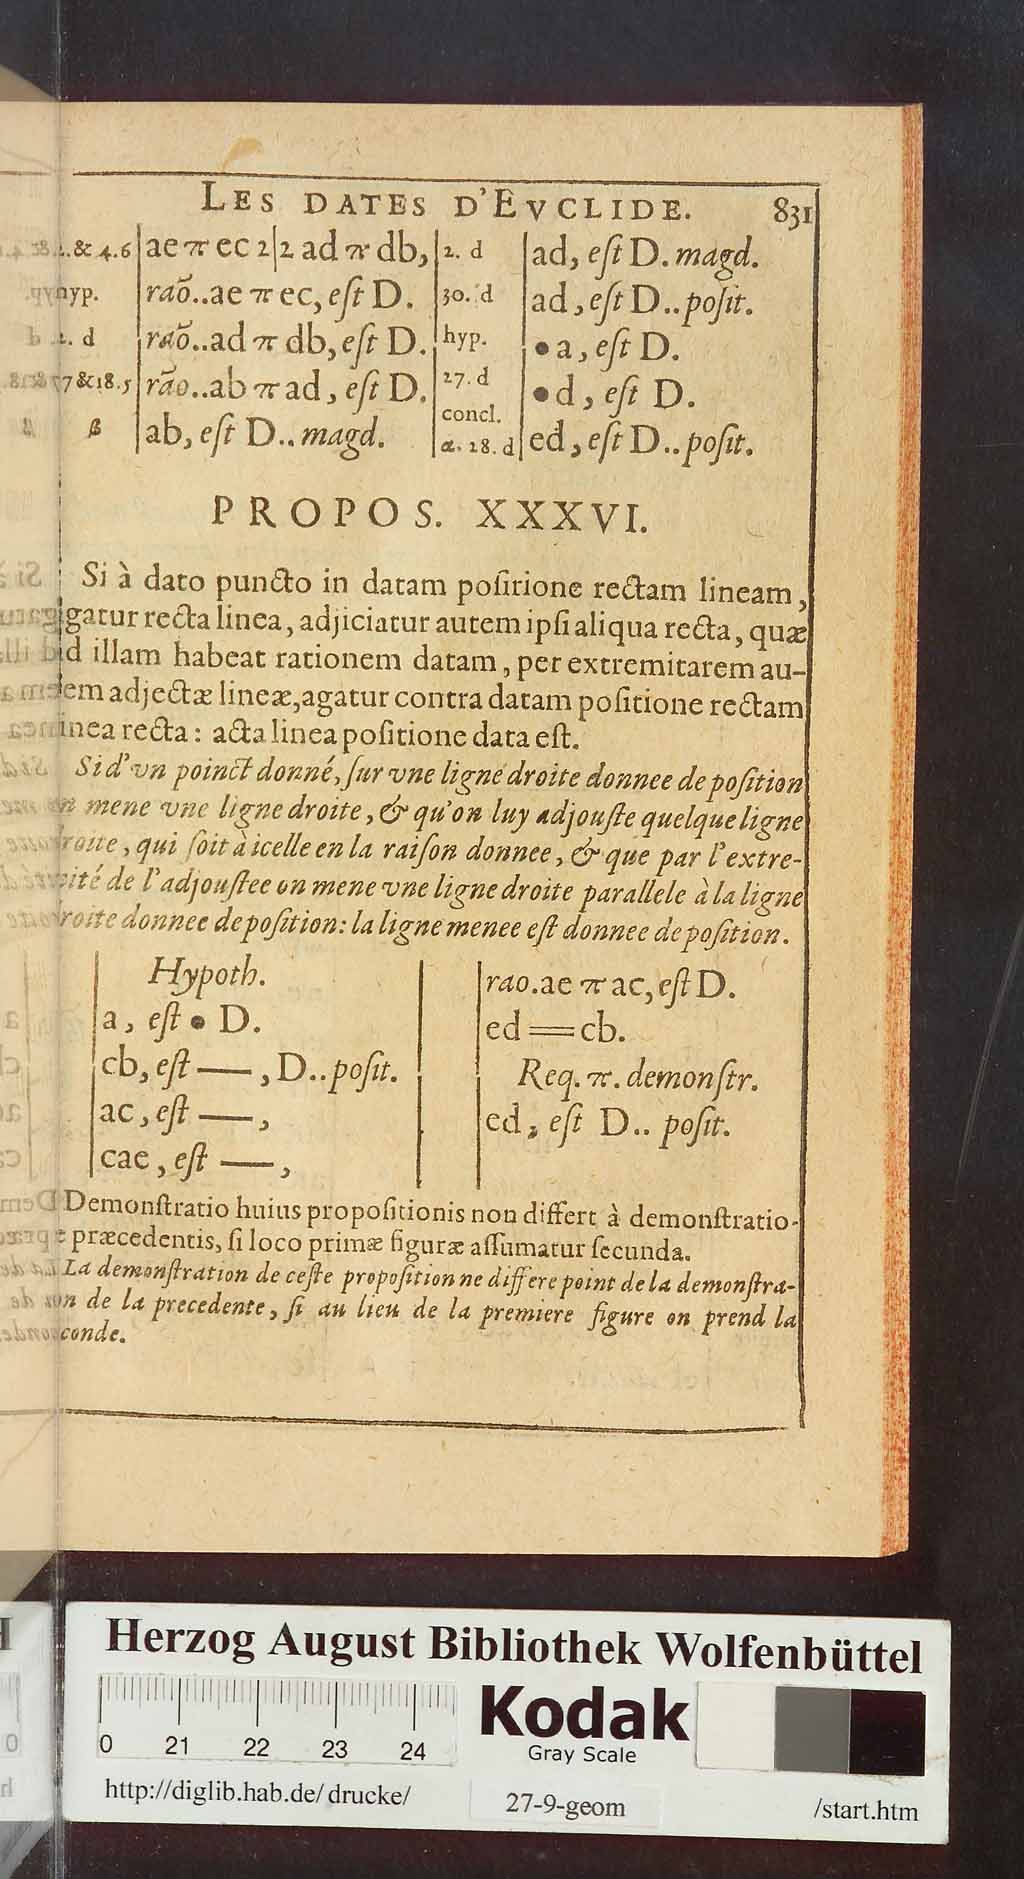 LES DATES D'EVCLIDE. 831
2. & 4. 6 | ae π ec 2|2 ad π db, | 2. d | ad, eſt D. magd.
hyp. | raõ..ae π ec, eſt D. | 30. d | ad, eſt D..poſit.
2. d | raõ..ad π db, eſt D. | hyp. | •a, eſt D.
7 & 18. 5 | rão..ab π ad, eſt D. | 27. d | •d, eſt D.
β | ab, eſt D.. magd. | concl.
α. 28. d | ed, eſt D..poſit.
PROPOS. XXXVI.
Si à dato puncto in datam poſitione rectam lineam,
gatur recta linea, adjiciatur autem ipſi aliqua recta, quæ
d illam habeat rationem datam, per extremitatem au-
em adjectæ lineæ, agatur contra datam poſitione rectam
inea recta: acta linea poſitione data eſt.
Si d'vn poinct donné, ſur vne ligne droite donnee de poſition
n mene vne ligne droite, & qu'on luy adjouſte quelque ligne
roite, qui ſoit à icelle en la raiſon donnee, & que par l'extre-
mité de l'adjouſtee on mene vne ligne droite parallele à la ligne
roite donnee de poſition: la ligne menee eſt donnee de poſition.
Hypoth.
a, eſt • D.
cb, eſt —, D..poſit.
ac, eſt —,
cae, eſt —,
rao.ae π ac, eſt D.
ed = cb.
Req. π. demonſtr.
ed, eſt D.. poſit.
Demonſtratio huius propoſitionis non differt à demonſtratio-
e præcedentis, ſi loco primæ figuræ aſſumatur ſecunda.
La demonſtration de ceſte propoſition ne differe point de la demonſtra-
on de la precedente, ſi au lieu de la premiere figure on prend la
conde.
Herzog August Bibliothek Wolfenbüttel
0 21 22 23 24
Kodak
Gray Scale
http://diglib.hab.de/drucke/ 27-9-geom /start.htm